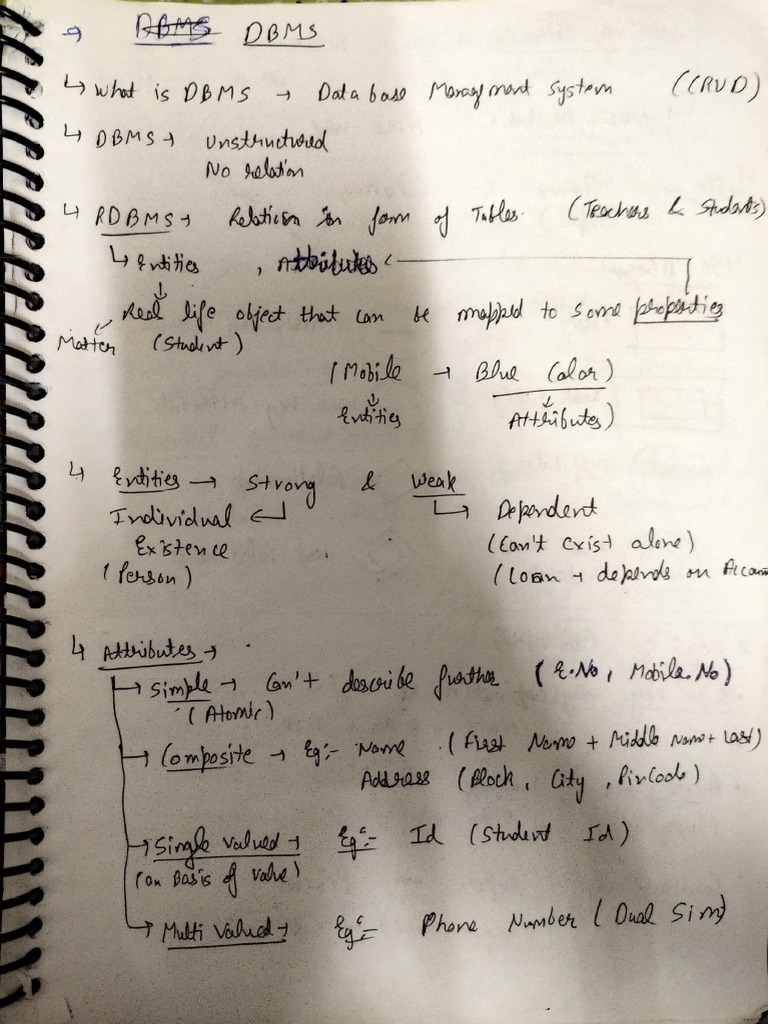 → DBMS DBMS
↳ What is DBMS → Database Management System (CRUD)
↳ DBMS → Unstructured
No relation
↳ RDBMS → Relation in form of Tables. (Teachers & Students)
↳ Entities , Attributes
Real life object that can be mapped to some properties
Matter (Student)
(Mobile → Blue Color)
Entities Attributes)
↳ Entities → Strong & Weak
Individual ↳ Dependent
Existence (Can't exist alone)
(Person) (Loan → depends on Accoun
↳ Attributes →
→ Simple → Can't describe further (E.No, Mobile.No)
(Atomic)
→ Composite → Eg:- Name (First Name + Middle Name + Last)
Address (Block, City, PinCode)
→ Single Valued → Eg:- Id (Student Id)
(on Basis of value)
→ Multi Valued → Eg:- Phone Number (Dual Sim)